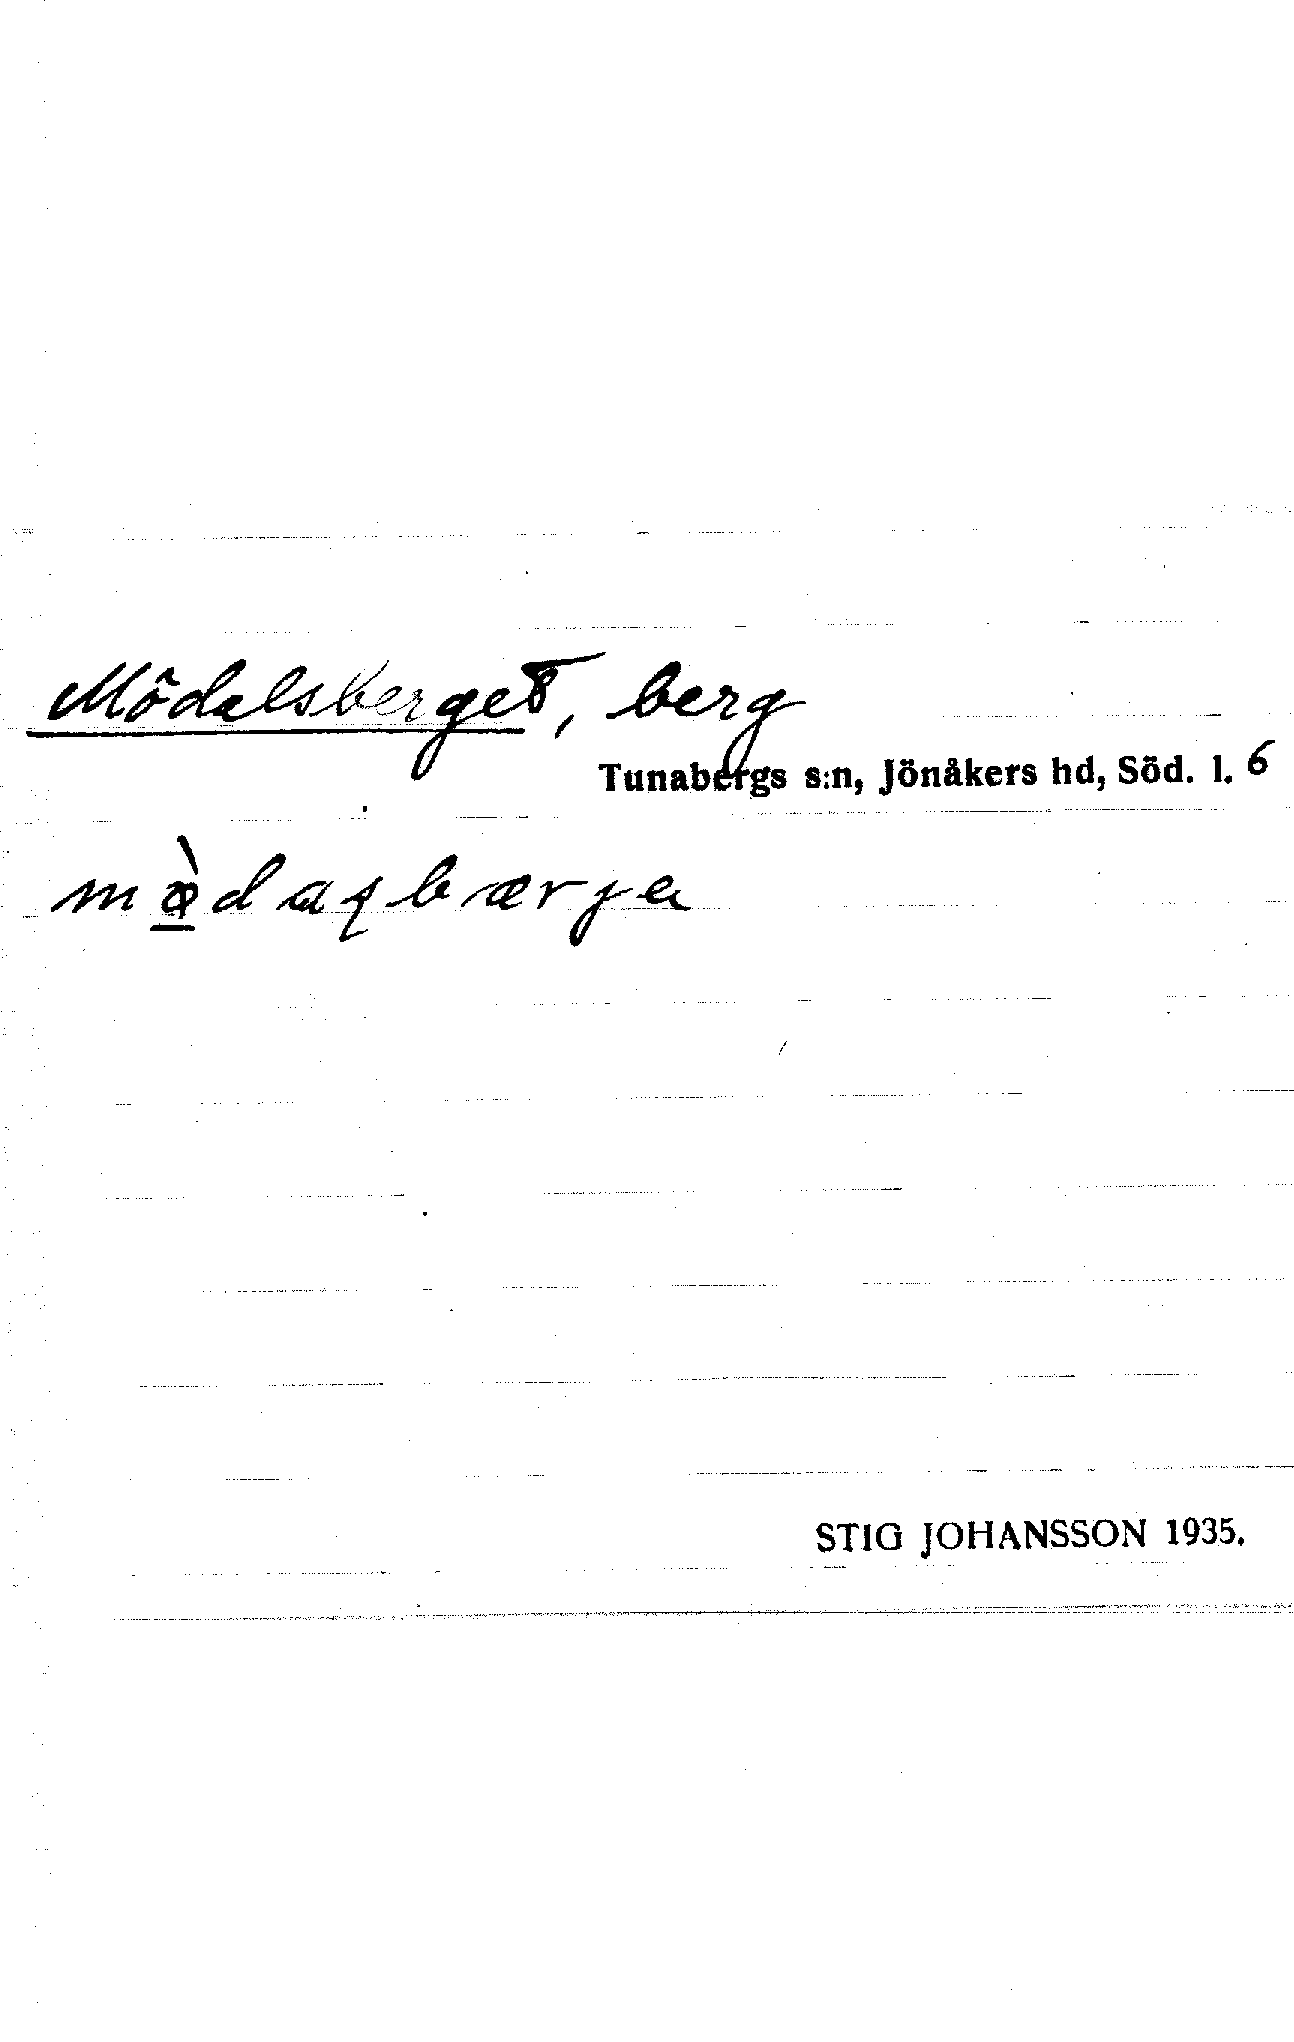 Mödalsberget, berg
Tunabergs s:n, Jönåkers hd, Söd. l. 6
STIG JOHANSSON 1935.